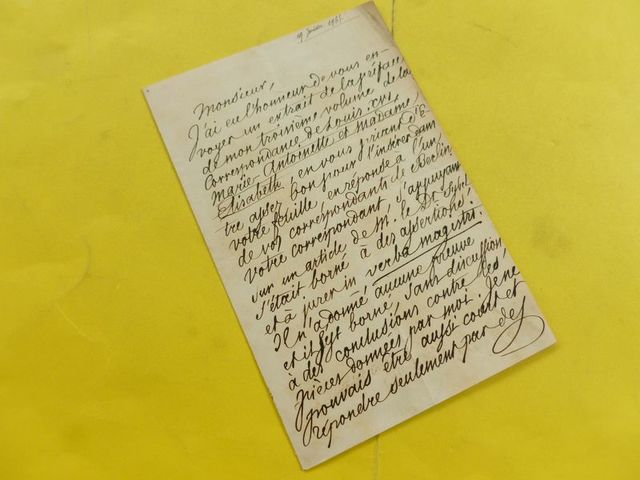 Monsieur,
J'ai eu l'honneur de vous en-
voyer un extrait de la préface
de mon troisième volume de la
Correspondance de Louis XVI,
Marie-Antoinette et Madame
Elisabeth, en vous priant d'ê-
tre assez bon pour l'insérer dans
votre feuille en réponse à l'un
de vos correspondants de Berlin.
Votre correspondant, s'appuyant
sur un article de M. le Dr Sybel
s'était borné à des assertions
et à jurer in verba magistri.
Il n'a donné aucune preuve
et il s'est borné, sans discussion,
à des conclusions contre les
pièces données par moi. Je ne
pouvais être aussi court et
répondre seulement par des